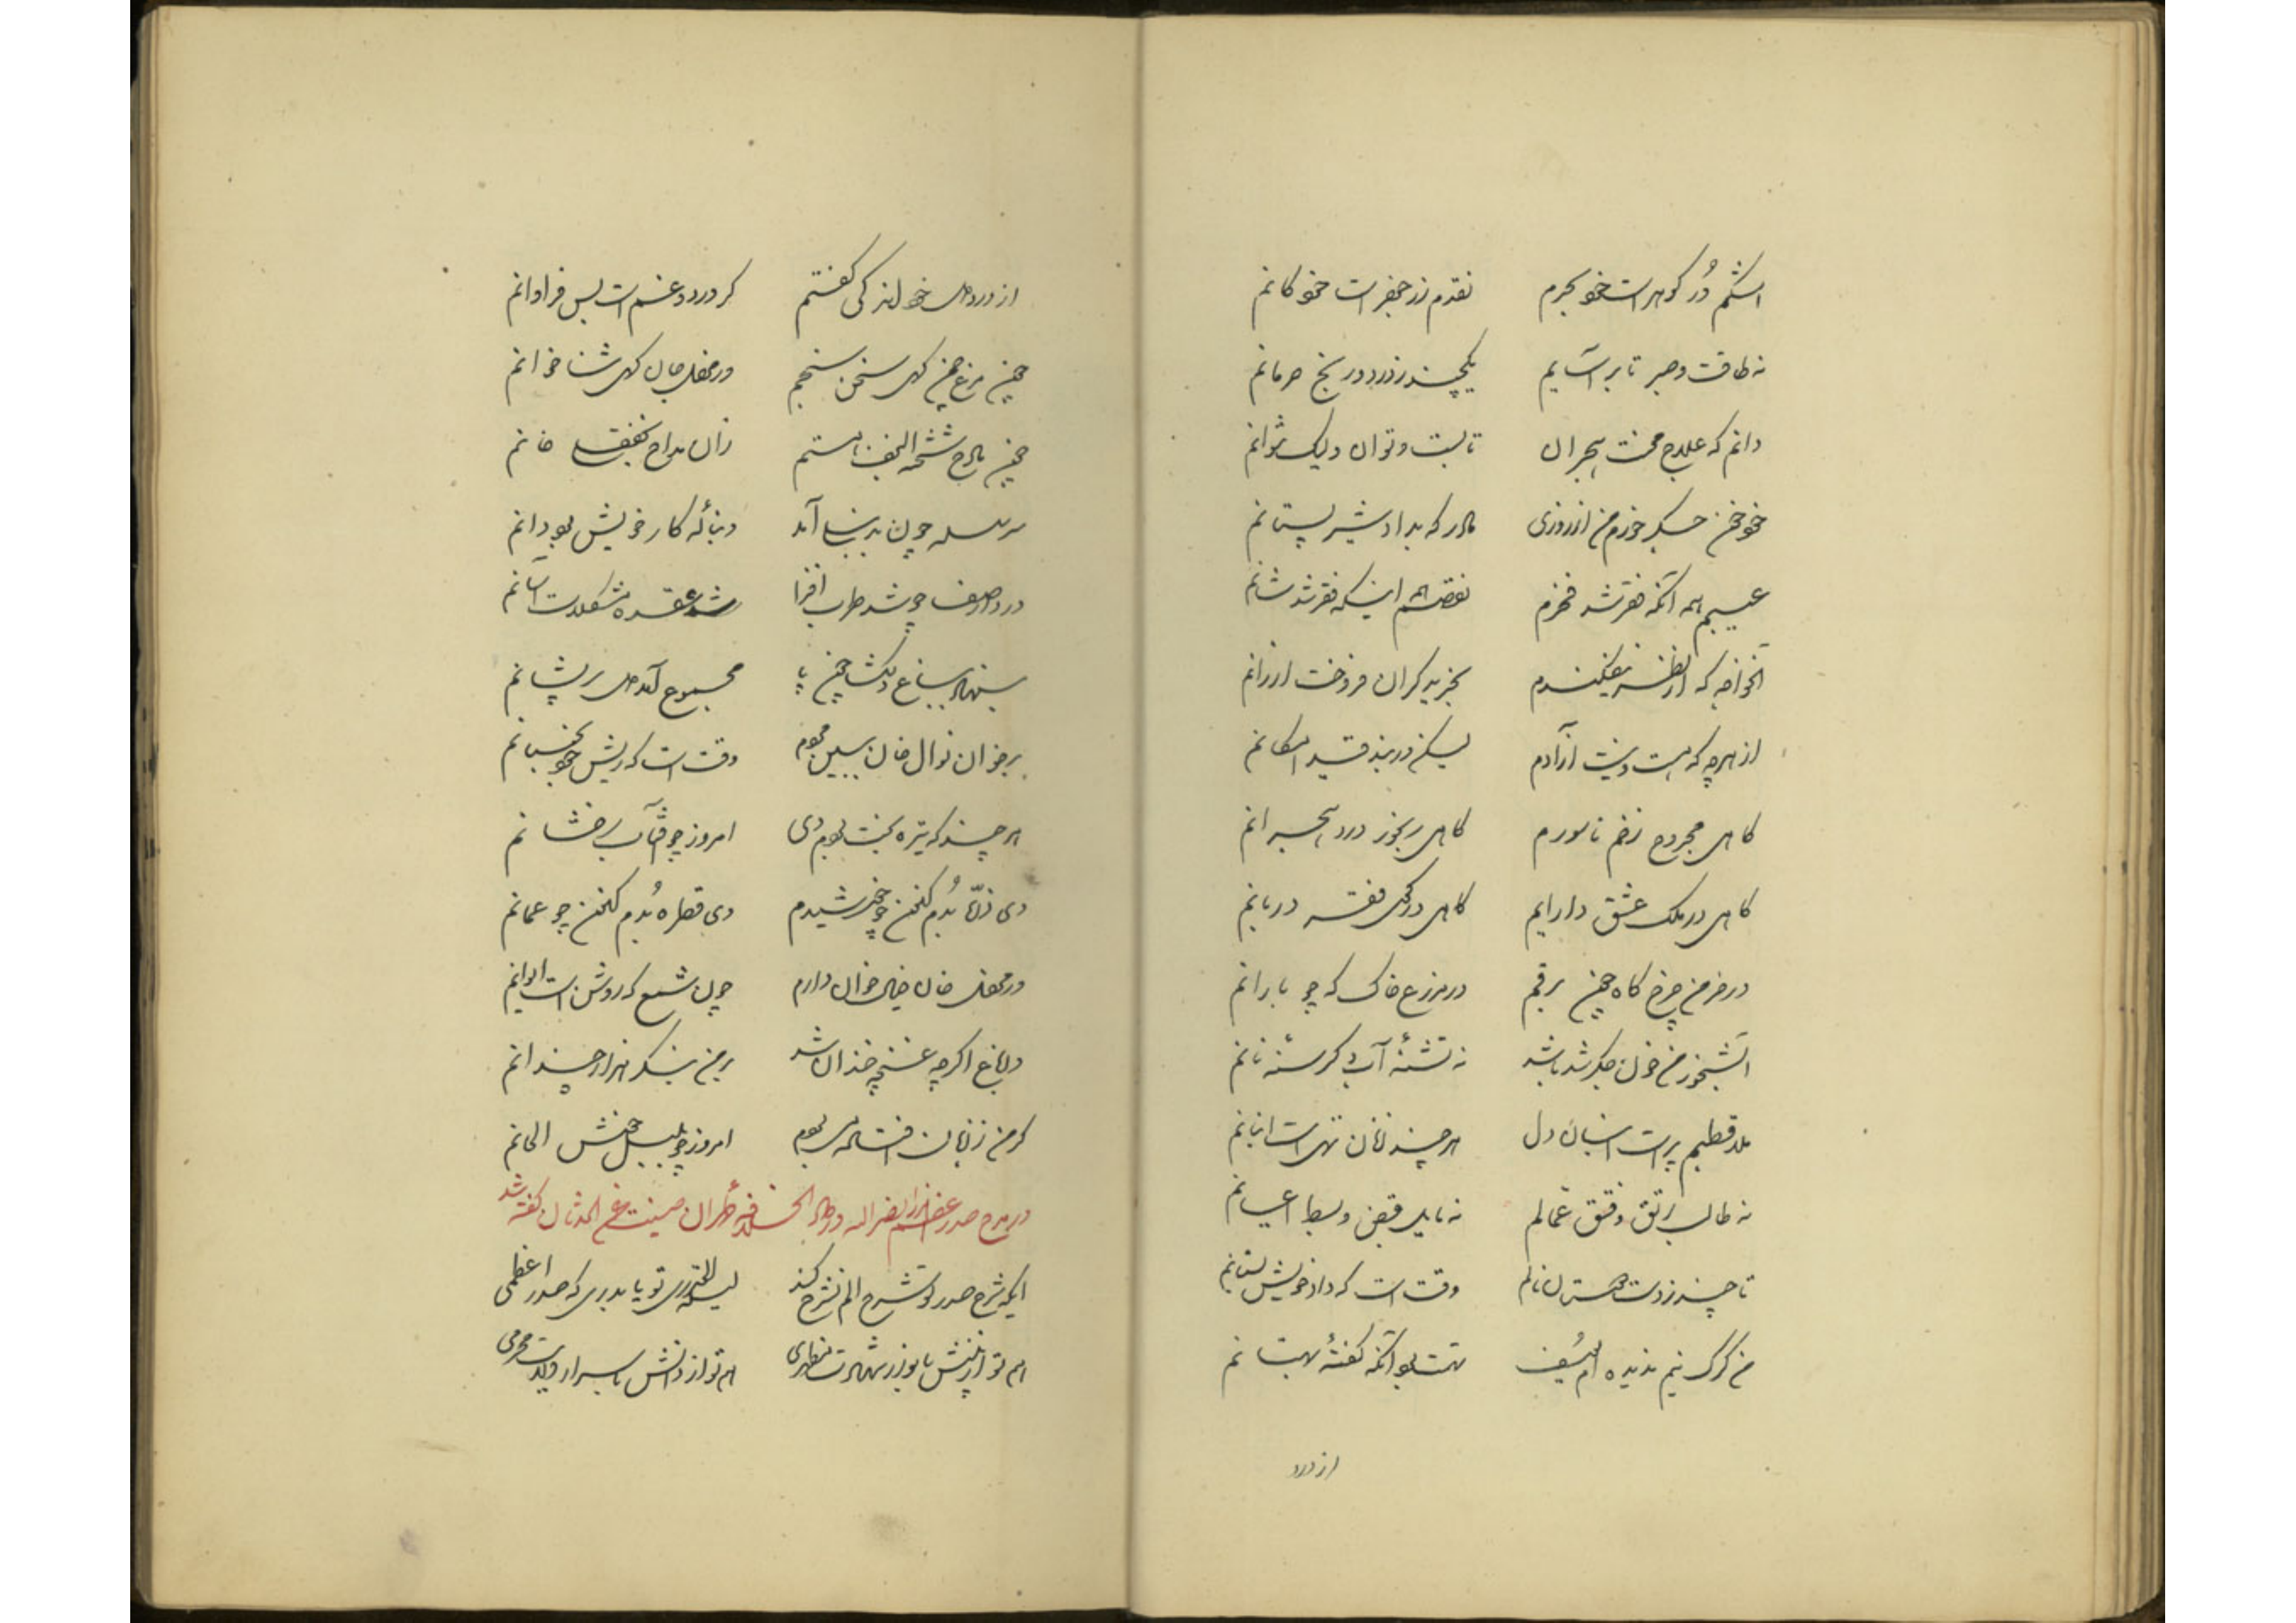 اشکم دُر گوهر است خود بحرم نقدم زر جعفر است خود کانم
نه طاقت و صبر تا برآسایم یکچند ز درد و رنج حرمانم
دانم که علاج محنت هجران تابست و توان ولیک نتوانم
خود خون جگر خورم من از روزی مادر که بداد شیر پستانم
عیبم همه آنکه فقر شد فخرم نقصم اینکه فقر شد شانم
آنخواجه که از نظر بیفکندم بخرید گران فروخت ارزانم
از هرچه که هست و نیست آزادم لیکن در بند قید امکانم
گاهی مجروح زخم ناسورم گاهی رنجور درد هجرانم
گاهی در ملک عشق دارایم گاهی در کوی فقر دربانم
در خرمن چرخ کاه چون برقم در مزرع خاک که چو بارانم
آبشخور من خون جگر شد باشد نه تشنهٔ آب و گرسنهٔ نانم
بلا قطیم پر است انبان دل هرچند ز نان تهی است انبانم
نه طالب رتق و فتق عمالم نه مایل قبض و بسط اعیانم
تا چند ز دست نالم وقت است که داد خویش بستانم
من گرگ نیم ندیده‌ام یوسف تهمت بود آنکه گفتهٔ بهتانم
از درد
از درد دل خود اندکی گفتم کز درد و غم است بس فراوانم
چون مرغ چمن کهی سخن سنجم در محفل جان کهی ثناخوانم
چون مادح شحنة النجف هستم زان مداح خانم
سرسلسله چون بدین بنا آمد دنبالهٔ کار خویش بودانم
در وصف چو شد طرب افزا شد عقده مشکلات آسانم
باغ دلگشا چون پا مجموع آمد دل پریشانم
بر خوان نوال خان ببین مهم وقت است که ریش خود بجنبانم
هرچند که تیره بخت بودم دی امروز چو آفتاب رخشانم
دی ذرّه بُدم کنون چو خورشیدم دی قطره بُدم کنون چو عمانم
در محفل خان خیال خوان دارم چون شمع که روشن است ایوانم
در باغ اگرچه غنچه خندان شد بر من بنگر هزار چندانم
گر من ز زبان فتاده می بودم امروز چو بلبل خوش الحانم
در مدح صدر اعظم میرزا نصرالله دار الخلافه طهران گفته شد
ایکه شرح صدر تو تشریح الم نشرح کند لیلة القدری تو یا بدری که صدر اعظمی
هم تو از بینش با نوار شهادت مظهری هم تو از دانش باسرار ولایت محرمی